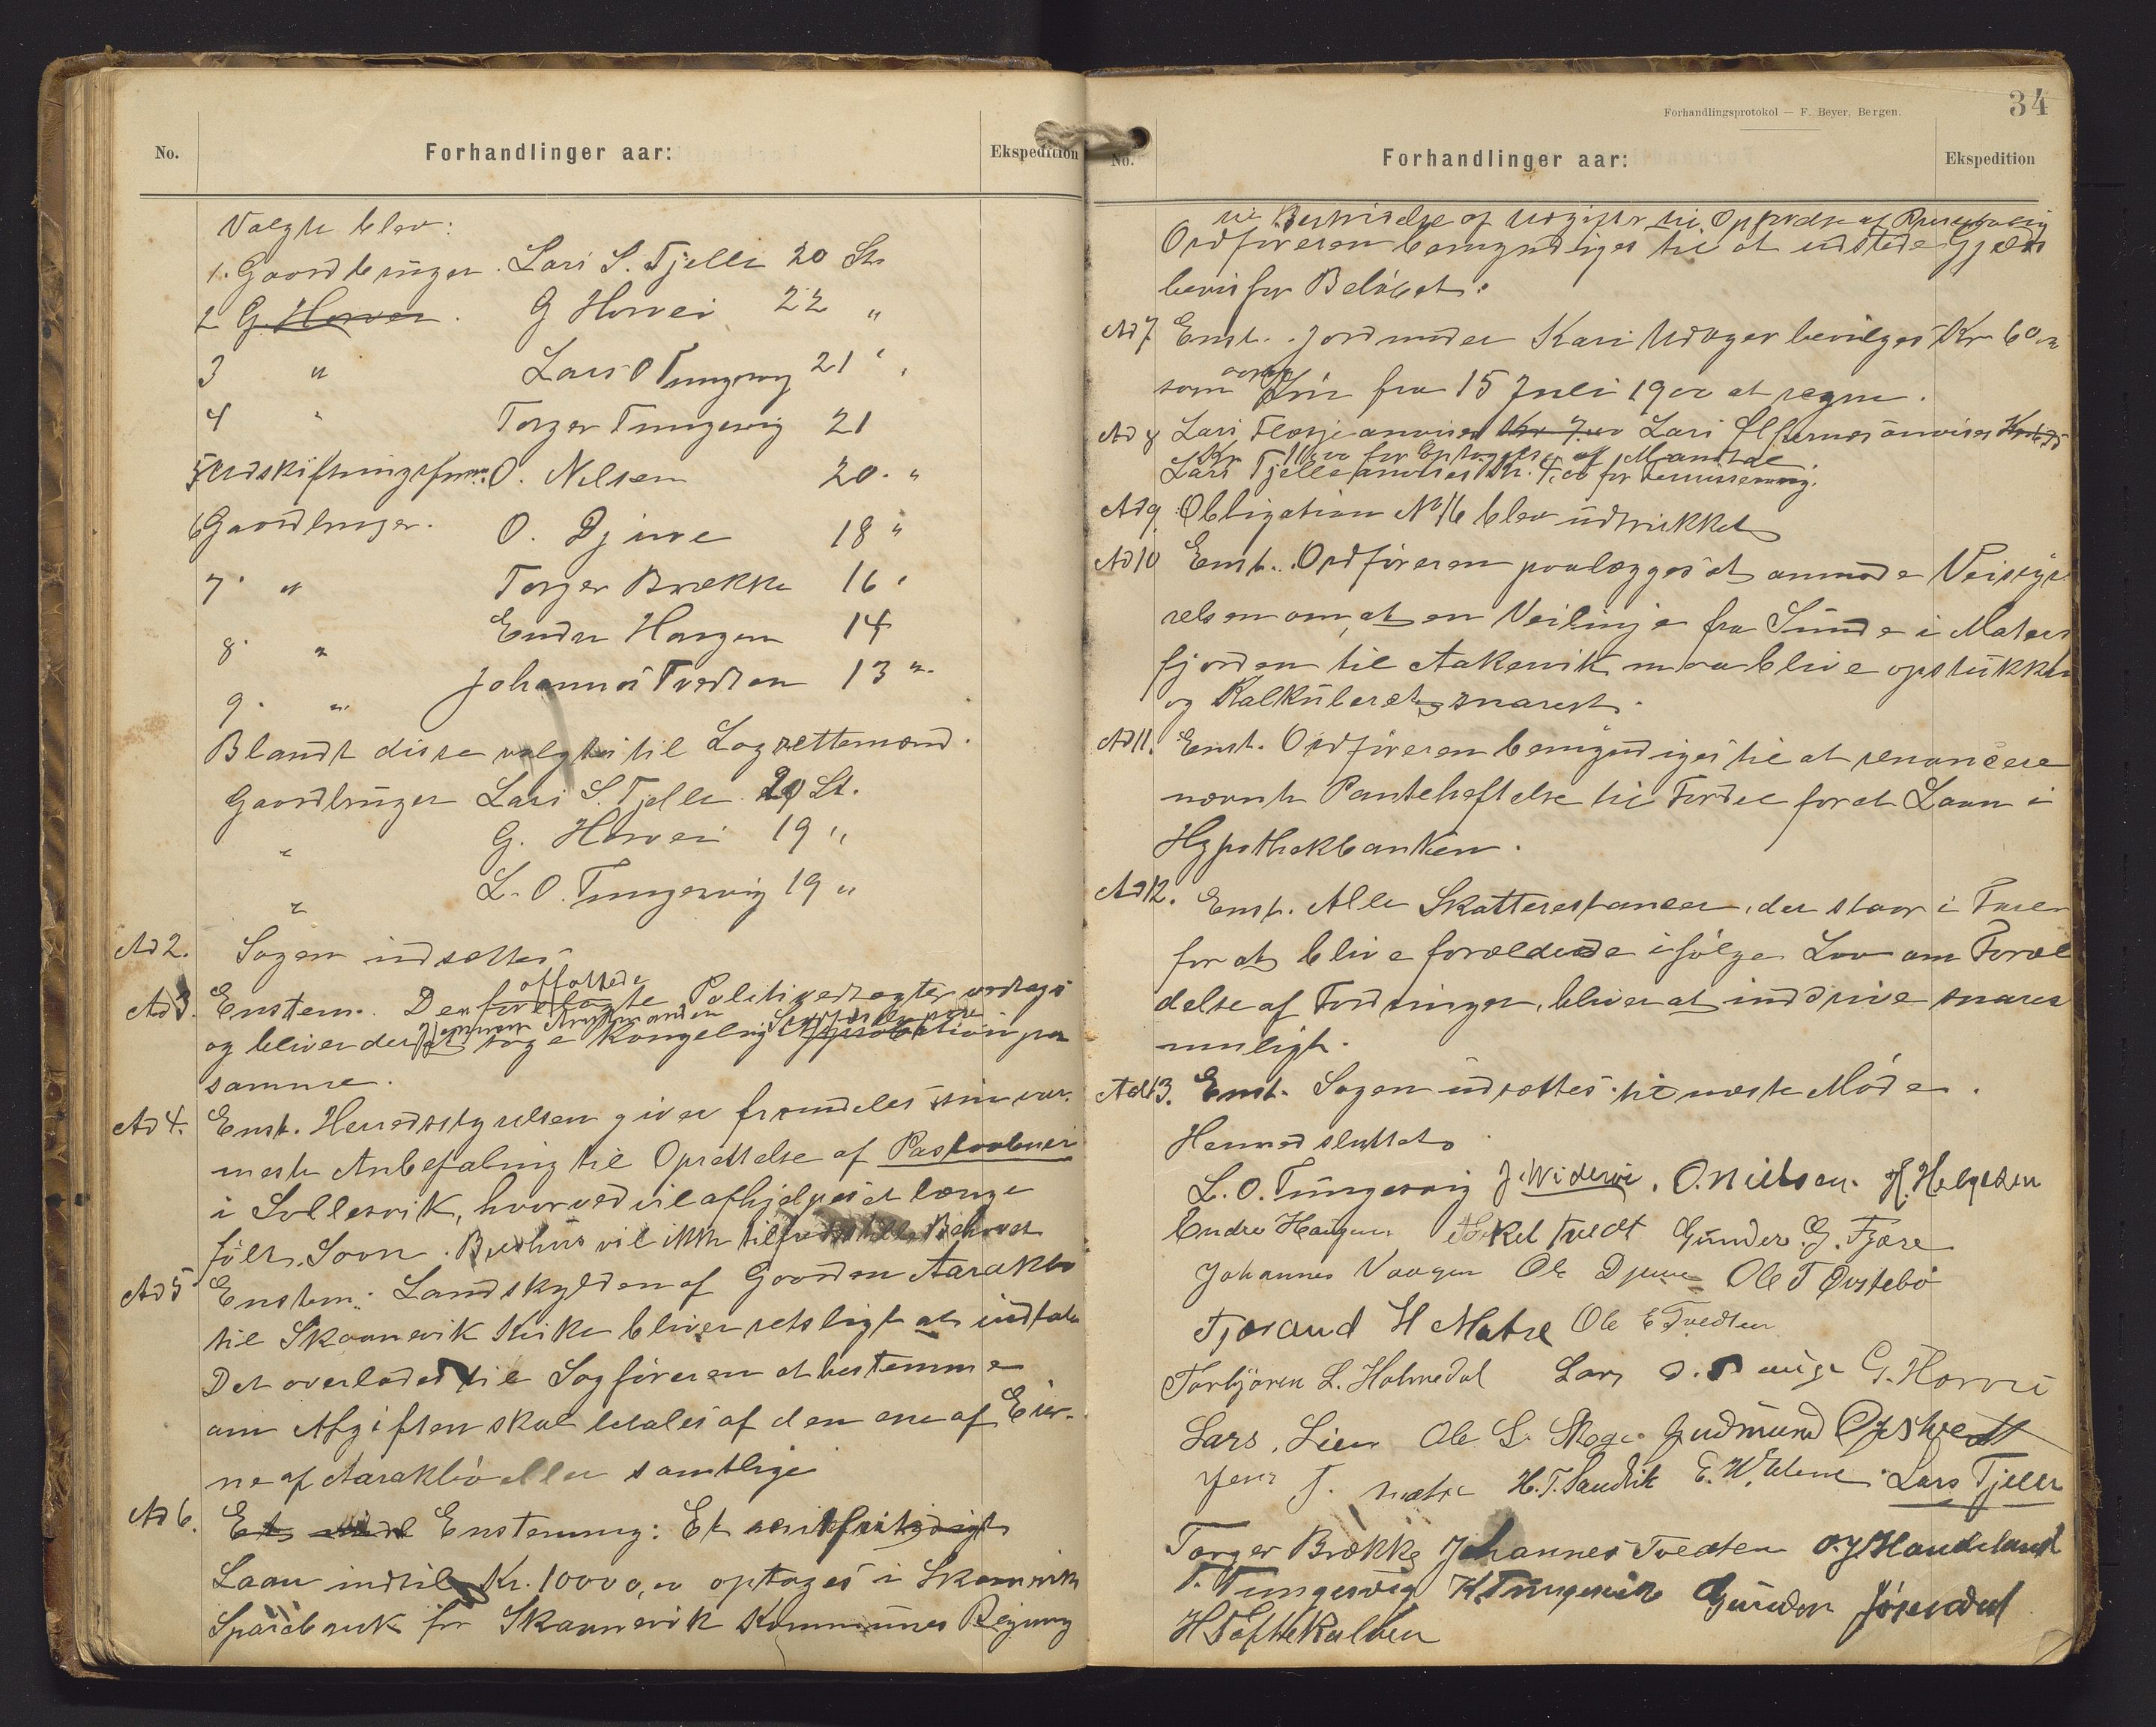 No.
Forhandlinger aar:
Ekspedition
Valgte blev:
1. Gaardbruger. Lars S. Tjelle 20 St.
2 G. Horvei. G Horvei 22 "
3 " Lars O Tungesvig 21 "
4 " Torger Tungesvig 21
5 Udskiftningsform: O. Nilsen 20. "
6 Gaardbruger. O. Djuve 18 "
7. " Torger Brække 16 "
8. " Endre Haugen 14
9. " Johannes Tvedten 13 "
Blandt disse valgtes til Lagrettemænd.
Gaardbruger Lars S. Tjelle 20 St.
" G. Horvei 19 "
" L. O. Tungesvig 19 "
Ad 2. Sagen udsættes
affattede
Ad 3. Enstem. Den forelagte Politivedtægter vedtages
gjennem Amtmanden Stadfæstelse paa
og bliver der at søge kongelig Approbation paa
samme.
Ad 4. Enst. Herredsstyrelsen giver fremdeles sin var-
meste Anbefaling til Oprettelse af Postaabneri
i Sollesvik, hvorved vil afhjelpes et længe
følt Savn. Brevhus vil ikke tilfredsstille Behovet
Ad 5 Enstem: Landskylden af Gaarden Aarakbø
til Skaanevik Kirke bliver retsligt at indtale
Det overlades til Sagføreren at bestemme
om Afgiften skal betales af den ene af Eier-
ne af Aarakbø eller samtlige
Ad 6. Et Enstemmig: Et rentefrit
Laan indtil Kr. 1000,00 optages i Skaanevik
Sparebank for Skaanevik Kommunes Regning
Forhandlingsprotokol — F. Beyer, Bergen.
34
No.
Forhandlinger aar:
Ekspedition
til Bestridelse af Udgifter til Opførelse af
Ordføreren bemyndiges til at udstede Gjælds
bevis for Beløbet.
Ad 7 Enst. Jordmoder Kari Udager bevilges Kr 60,00
som Løn fra 15 Juli 1900 at regne.
Ad 8 Lars Fløgje anvises Kr 7.00 Lars anvises
Kr for Optagelse af Mandtal
Lars Tjelle anvises Kr. 4,00 for
Ad 9. Obligation No 16 blev udtrukket
Ad 10 Enst. Ordføreren paalægges at anmode Veisty-
relsen om, at en Veilinje fra Sunde i Maters
fjorden til Aakervik maa blive opstukket
og kalkuleret snarest.
Ad 11. Enst. Ordføreren bemyndiges til at renoncere
nævnte Panteheftelse til Fordel for et Laan i
Hypothekbanken.
Ad 12. Enst. Alle Skatterestancer, der staar i Fare
for at blive forældede ifølge Lov om Foræl
delse af Fordringer, bliver at inddrive snarest
muligt.
Ad 13. Enst. Sagen udsættes til næste Møde.
Hermed sluttet
L. O. Tungesvig J. Widervei. O. Nielsen. H. Helgesen
Endre Haugen Tvedt Gunder G. Fjære
Johannes Vaagen Ole Djuve Ole T Øvstebø
Tjærand H Matre Ole E Tvedten
Torbjøren L. Holmedal Lars O. G. Horvei
Lars. Lien Ole S. Skoge Gudmund
Jens J. Matre H. T. Sandvik E. W. Lars Tjelle
Torger Brække Johannes Tvedten O. J. Handeland
T. Tungesvig K. Tungesvik Gunder
H Toftekalven